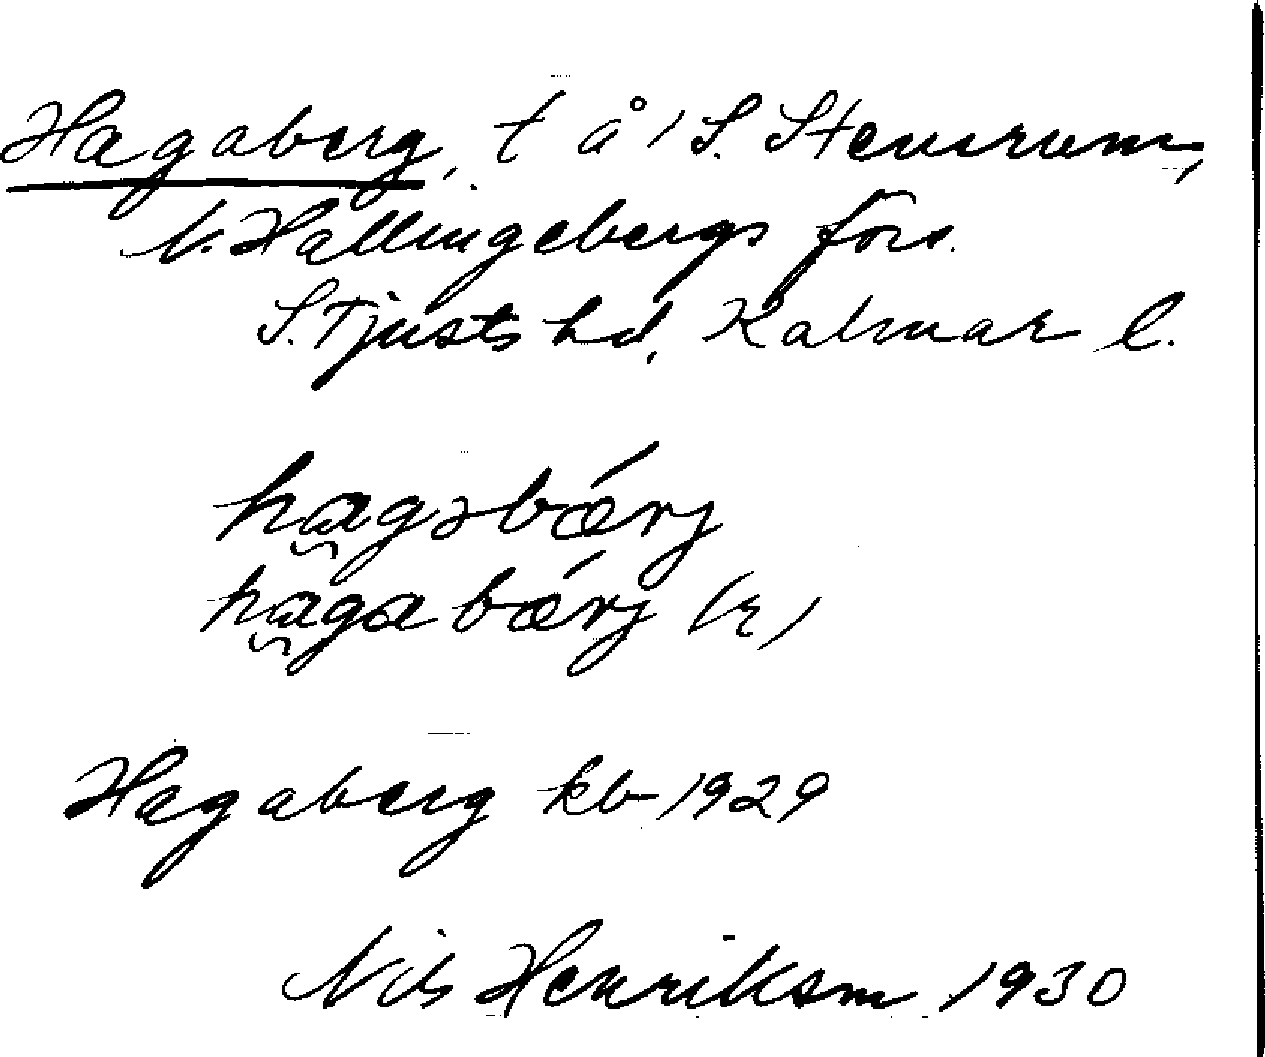 Hagaberg, t å 1 S. Stensrum,
V. Hallingebergs förs.
S. Tjusts hd, Kalmar l.
hagəbǽrj
hagabǽrj (r)
Hagaberg kb 1929
Nils Henrikson 1930